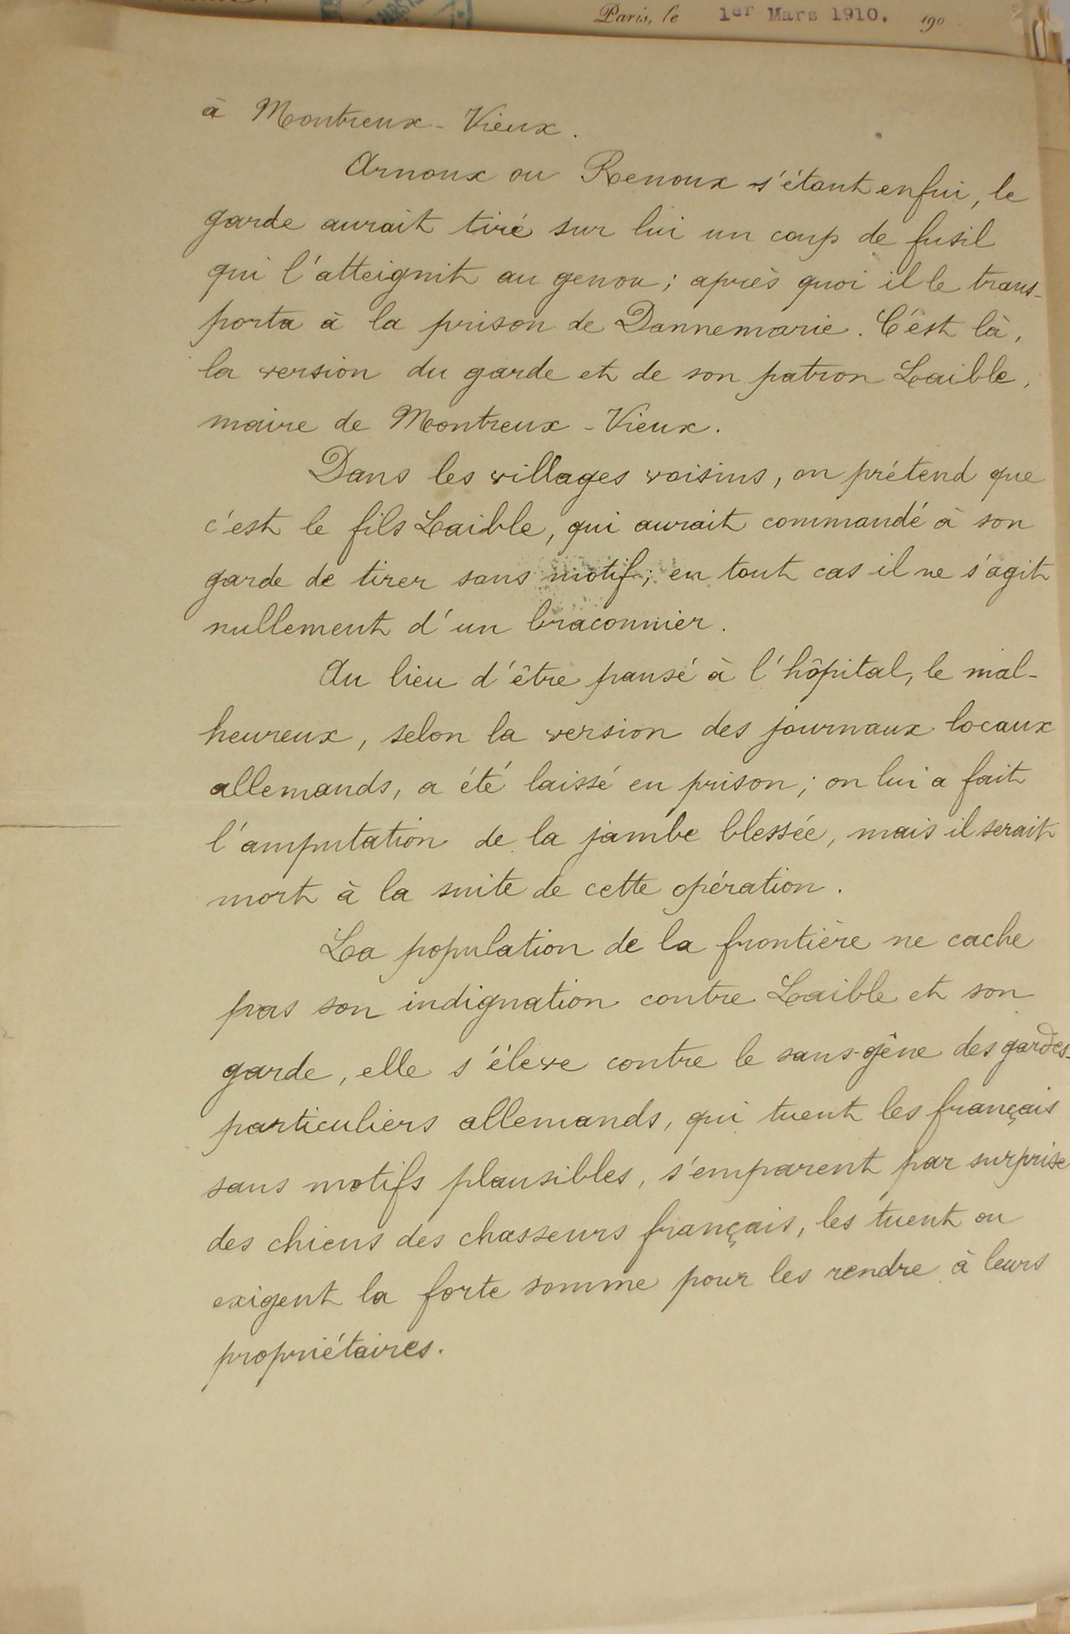 Paris, le 1er Mars 1910. 190
à Montreux-Vieux.
Arnoux ou Renoux s'étant enfui, le
garde aurait tiré sur lui un coup de fusil
qui l'atteignit au genou; après quoi il le trans-
porta à la prison de Dannemarie. C'est là,
la version du garde et de son patron Laible,
maire de Montreux-Vieux.
Dans les villages voisins, on prétend que
c'est le fils Laible, qui aurait commandé à son
garde de tirer sans motif; en tout cas il ne s'agit
nullement d'un braconnier.
Au lieu d'être pansé à l'hôpital, le mal-
heureux, selon la version des journaux locaux
allemands, a été laissé en prison; on lui a fait
l'amputation de la jambe blessée, mais il serait
mort à la suite de cette opération.
La population de la frontière ne cache
pas son indignation contre Laible et son
garde, elle s'élève contre le sans-gêne des gardes-
particuliers allemands, qui tuent les français
sans motifs plausibles, s'emparent par surprise
des chiens des chasseurs français, les tuent ou
exigent la forte somme pour les rendre à leurs
propriétaires.